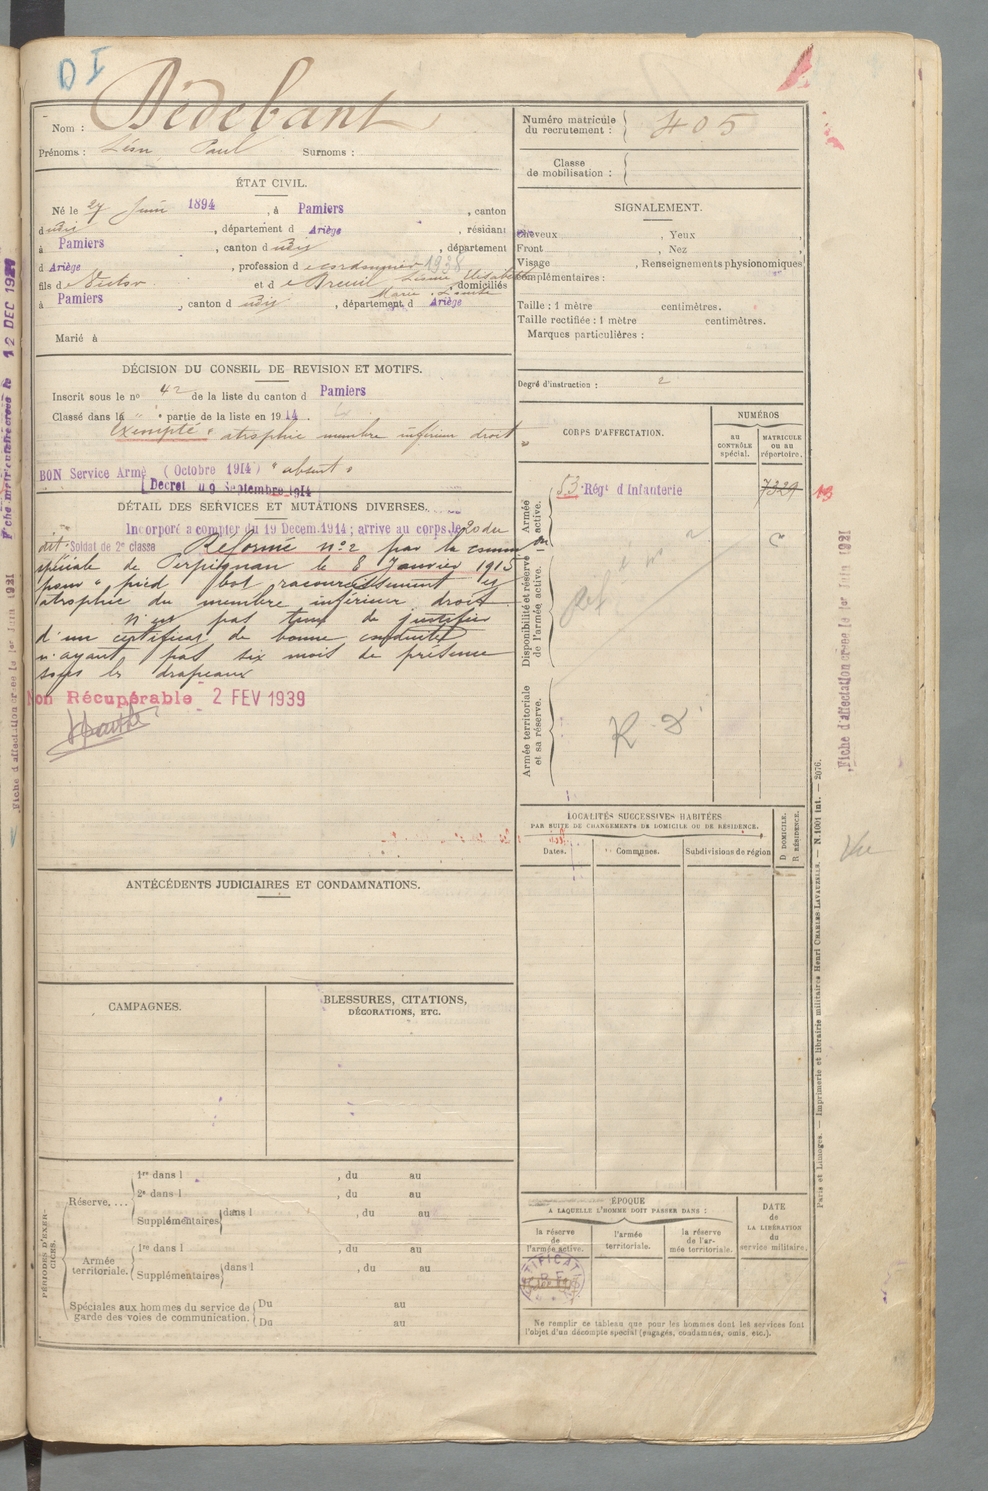 D I
Nom : Dedebant
Prénoms : Léon Paul Surnoms :
Numéro matricule du recrutement : 405
Classe de mobilisation :
ÉTAT CIVIL.
Né le 27 Juin 1894, à Pamiers, canton
dudit, département d Ariège, résidant
à Pamiers, canton dudit, département
d Ariège, profession de cordonnier 1938
fils de Victor et de Breuil Elisabeth Marie, domiciliés
à Pamiers, canton dudit, département d Ariège
Marié à
SIGNALEMENT.
Cheveux, Yeux,
Front, Nez
Visage, Renseignements physionomiques
complémentaires :
Taille : 1 mètre centimètres.
Taille rectifiée : 1 mètre centimètres.
Marques particulières :
Degré d'instruction : 2
DÉCISION DU CONSEIL DE REVISION ET MOTIFS.
Inscrit sous le no 42 de la liste du canton d Pamiers
Classé dans la " partie de la liste en 1914.
Exempté " atrophie membre inférieur droit "
BON Service Armé (Octobre 1914) " absent "
(Décret du 9 Septembre 1914
DÉTAIL DES SERVICES ET MUTATIONS DIVERSES.
Incorporé à compter du 19 Decem.1914 ; arrive au corps le 20 du
dit. Soldat de 2e classe Réformé no 2 par la comm on
spéciale de Perpignan le 8 Janvier 1915
pour " pied bot raccourcissement et
atrophie du membre inférieur droit.
N'est pas tenu de justifier
d'un certificat de bonne conduite
n'ayant pas six mois de présence
sous les drapeaux
Non Récupérable 2 FEV 1939
CORPS D'AFFECTATION.
NUMÉROS
AU CONTRÔLE spécial.
MATRICULE ou au répertoire.
Armée active.
53 Régt d'Infanterie 7329 13
Disponibilité et réserve de l'armée active.
Armée territoriale et sa réserve.
R. D
LOCALITÉS SUCCESSIVES HABITÉES
PAR SUITE DE CHANGEMENTS DE DOMICILE OU DE RÉSIDENCE.
Dates.
Communes.
Subdivisions de région
D DOMICILE.
R RÉSIDENCE.
ANTÉCÉDENTS JUDICIAIRES ET CONDAMNATIONS.
CAMPAGNES.
BLESSURES, CITATIONS,
DÉCORATIONS, ETC.
PÉRIODES D'EXERCICES.
Réserve, ....
1re dans l , du au
2e dans l , du au
Supplémentaires dans l , du au
Armée territoriale.
1re dans l , du au
Supplémentaires dans l , du au
Spéciales aux hommes du service de garde des voies de communication.
Du au
Du au
ÉPOQUE
A LAQUELLE L'HOMME DOIT PASSER DANS :
la réserve de l'armée active.
l'armée territoriale.
la réserve de l'armée territoriale.
DATE de LA LIBÉRATION du service militaire.
Ne remplir ce tableau que pour les hommes dont les services font
l'objet d'un décompte spécial (engagés, condamnés, omis, etc.).
Paris et Limoges. — Imprimerie et librairie militaires Henri CHARLES-LAVAUZELLE. — N. 1001 int. — 2076.
Fiche d'affectation créée le 1er Juin 1921
Vu
Fiche matriculaire créée le 12 DEC 1921
Fiche d'affectation créée le 1er Juin 1921